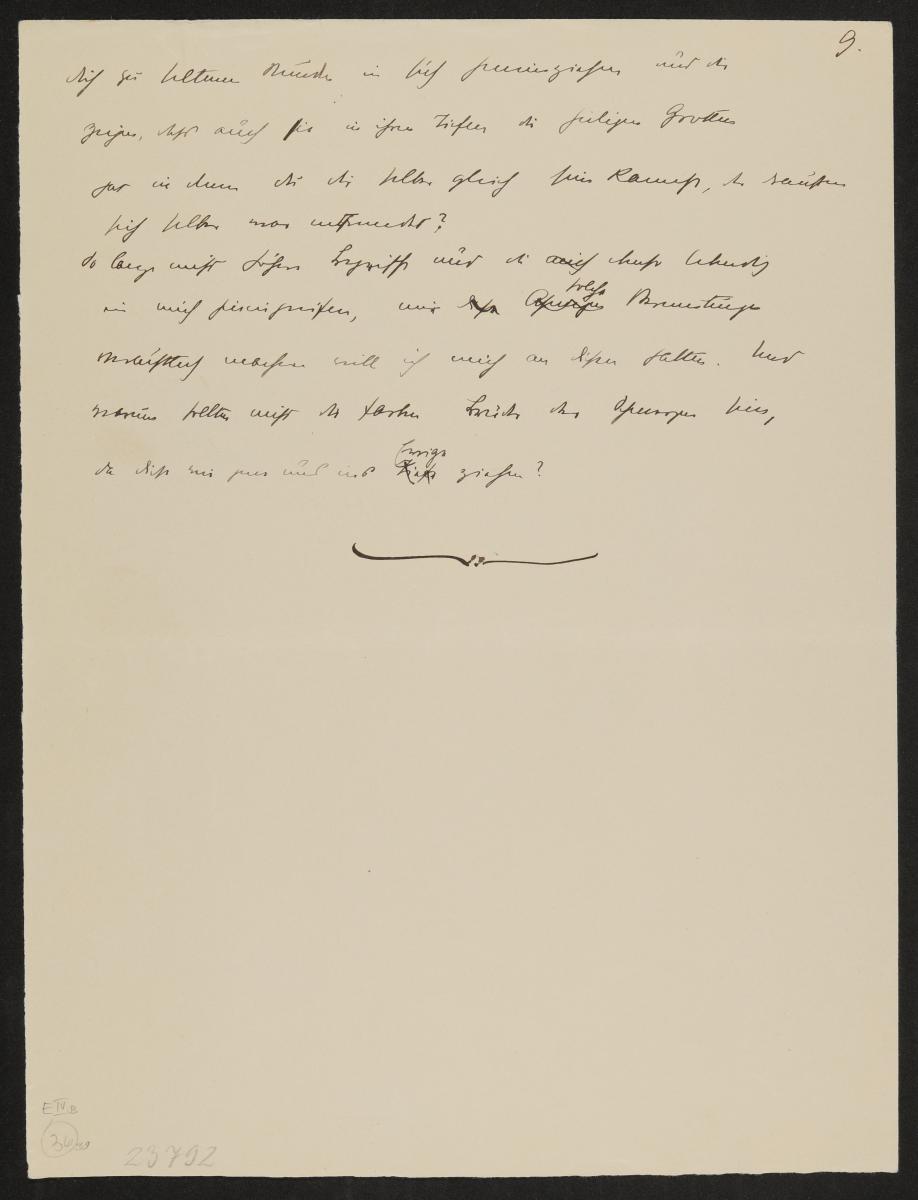 9.
dich zu seltenen Stunden in sich hineinziehen und dir
zeigen, dass auch sie in ihren Tiefen die heiligen Grotten
hat in denen du dir selber gleich sein kannst, der draußen
sich selber war entfremdet?
So lange nicht höhere Begriffe und die auch mehr lebendig
in mich hineingreifen, mir solche
will ich mich an diesen halten. Und
warum sollten nicht die Farben Brücke der Ahnungen sein,
da diese uns hin und ins Ewige ziehen?
E IV B
36
23792